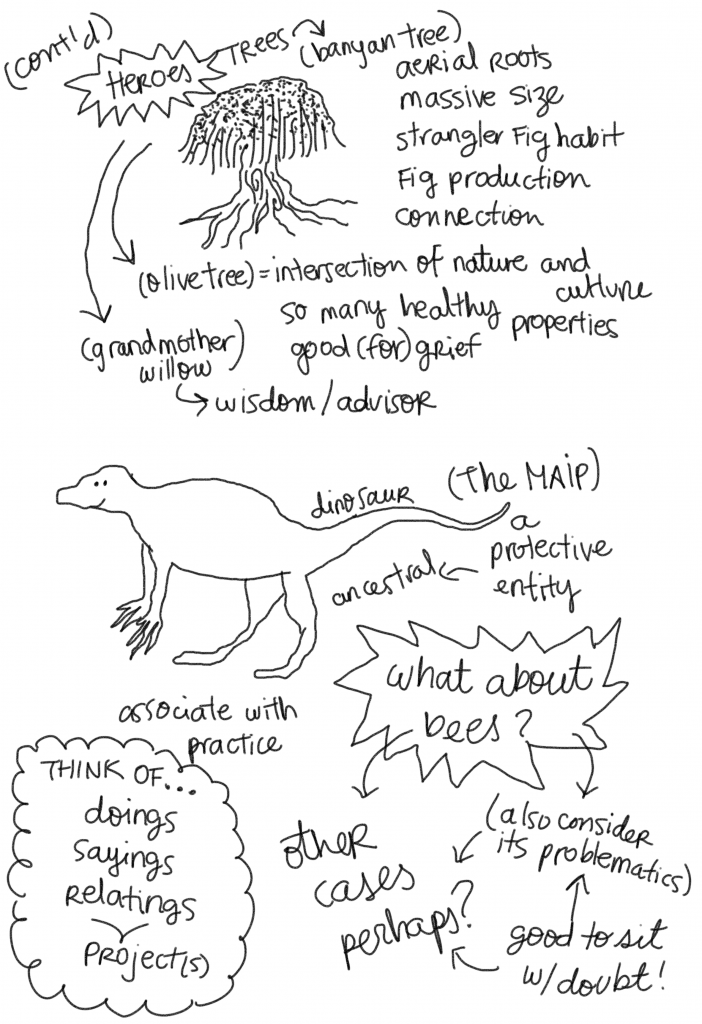 (cont'd)
HEROES
TREES
(banyan tree)
aerial roots
massive size
strangler Fig habit
Fig production
connection
(olive tree) = intersection of nature and
culture
so many healthy
properties
good (for) grief
(grandmother
willow)
wisdom / advisor
dinosaur
(The MAIP)
a
protective
entity
ancestral
what about
bees?
associate with
practice
THINK OF...
doings
sayings
Relatings
PROJECT(S)
other
cases
perhaps?
(also consider
its problematics)
good to sit
w/ doubt!